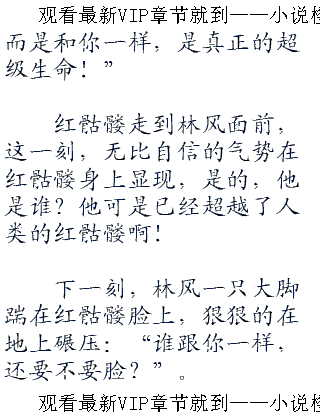 观看最新VIP章节就到——小说检
而是和你一样，是真正的超
级生命！”
红骷髅走到林风面前，
这一刻，无比自信的气势在
红骷髅身上显现，是的，他
是谁？他可是已经超越了人
类的红骷髅啊！
下一刻，林风一只大脚
踹在红骷髅脸上，狠狠的在
地上碾压：“谁跟你一样，
还要不要脸？”。
观看最新VIP章节就到——小说检